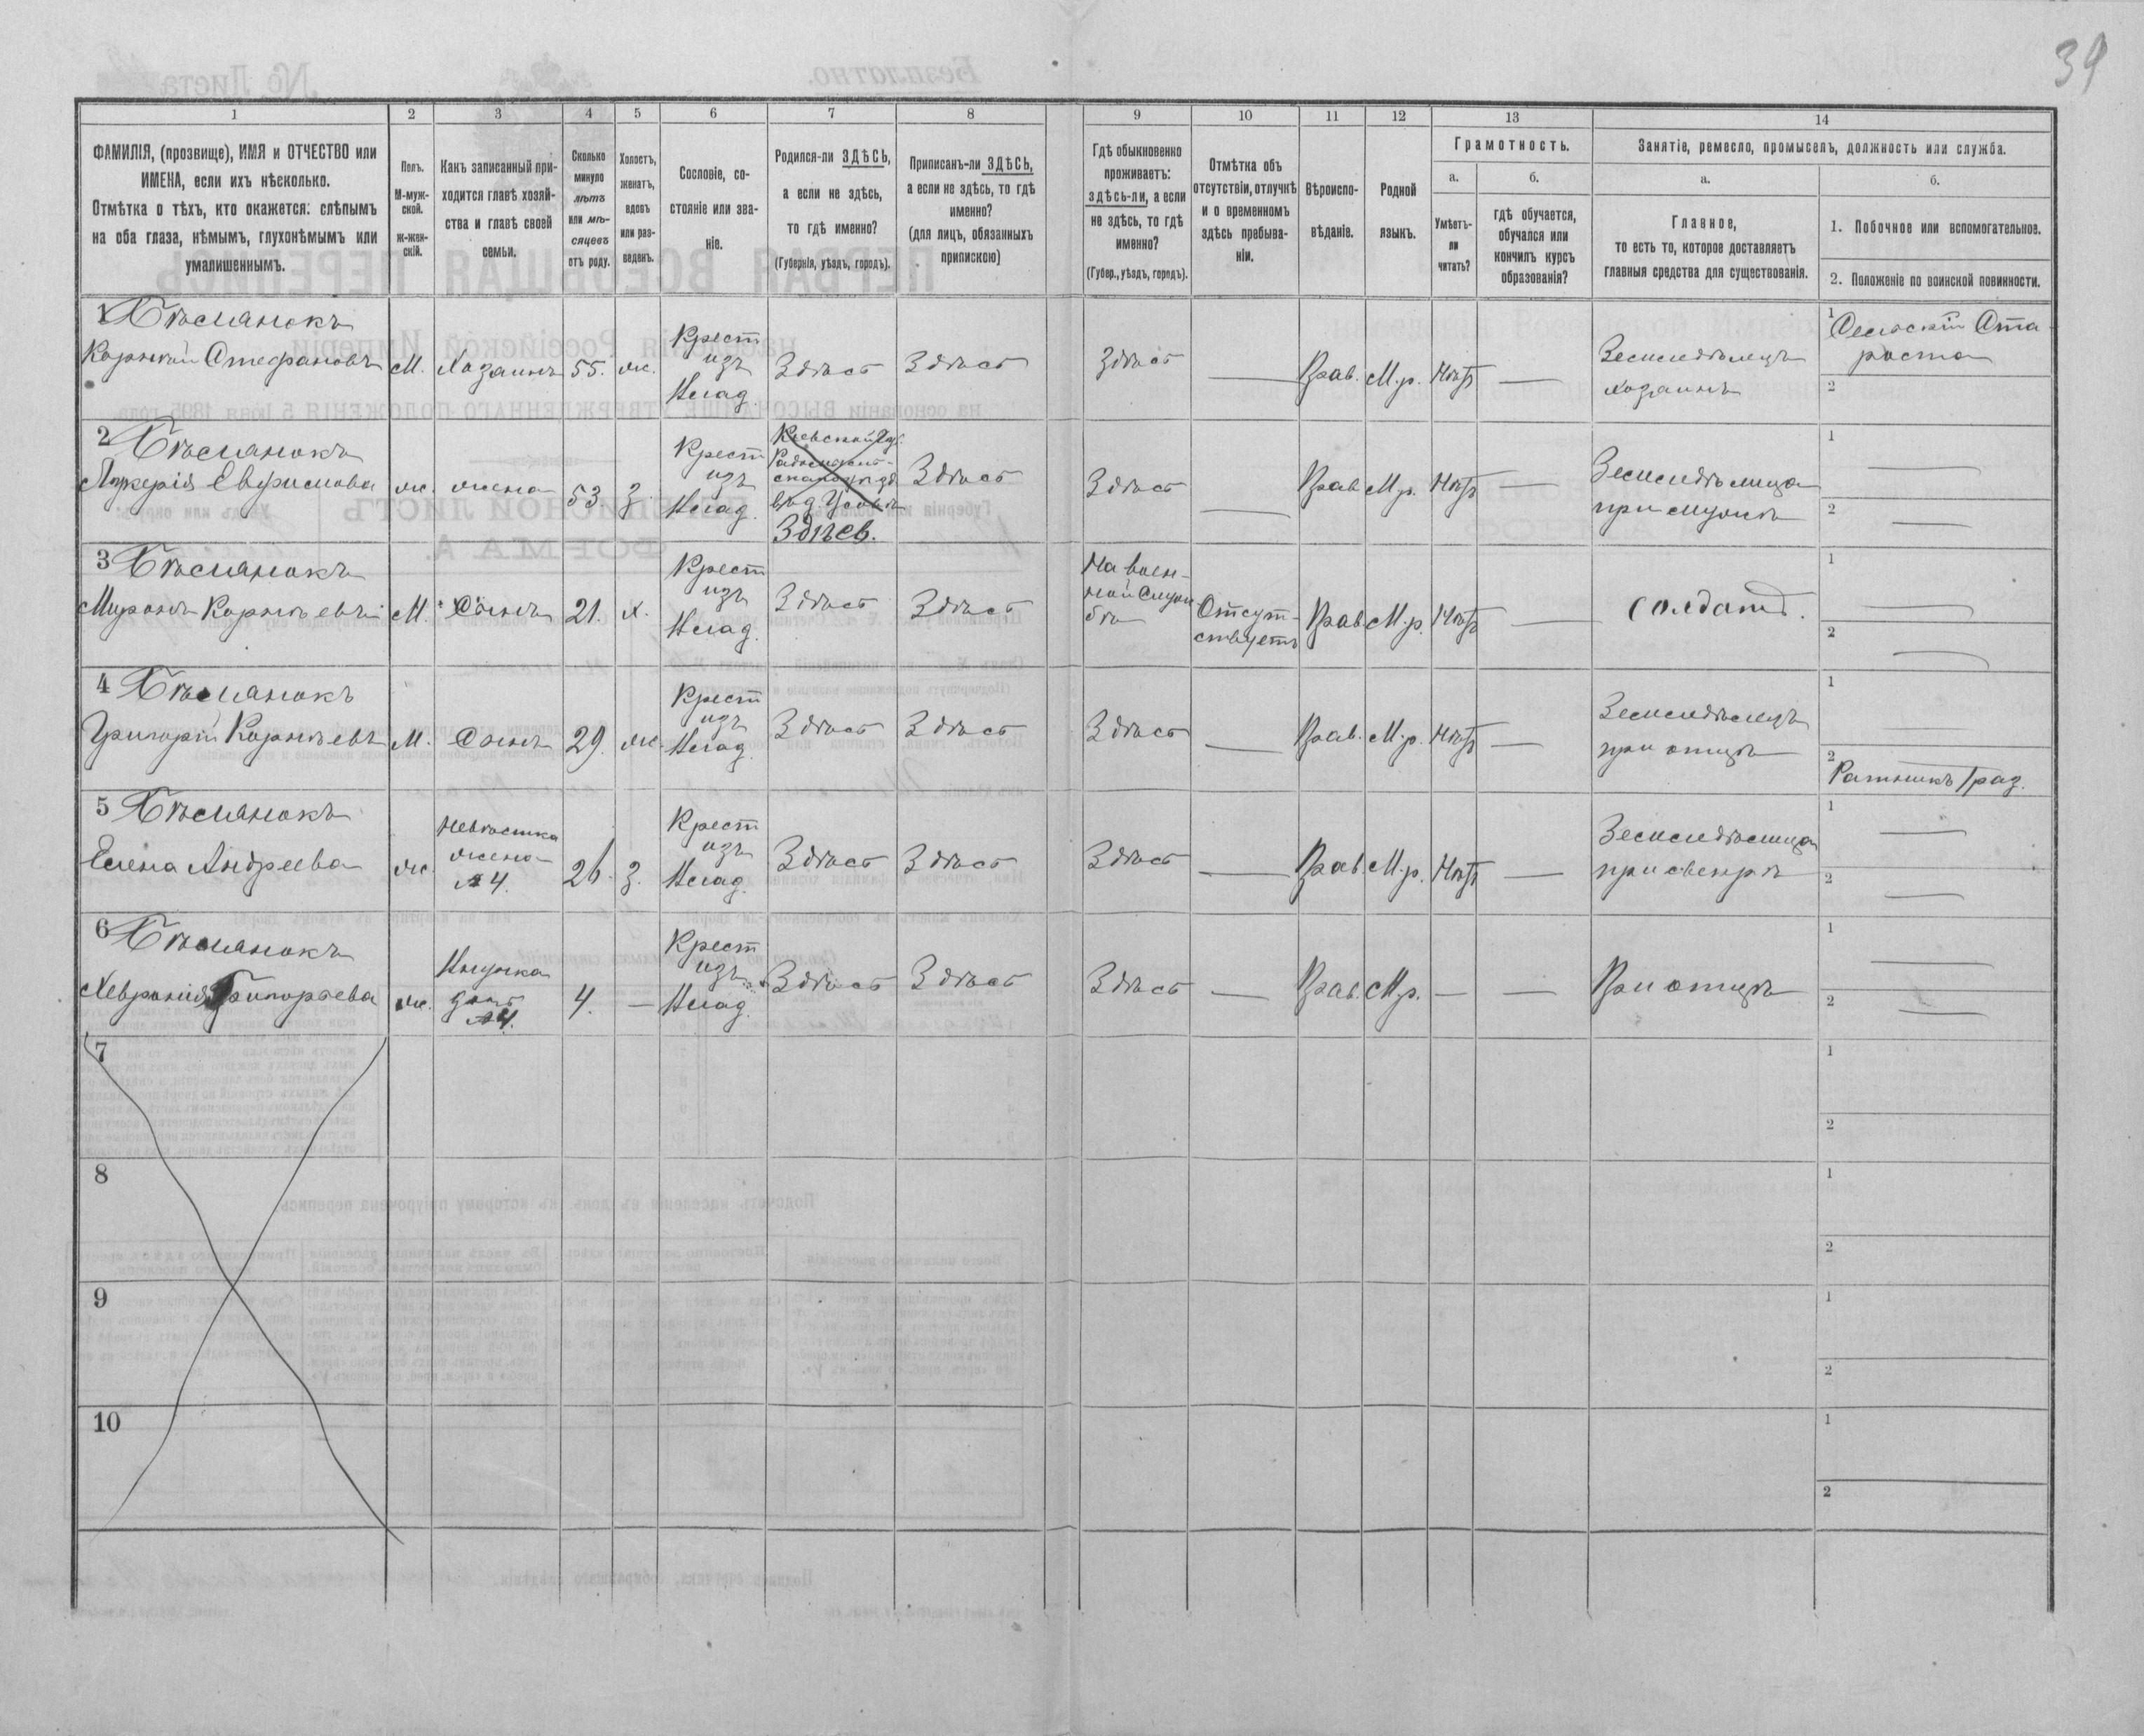 39
1
2
3
4
5
6
7
8
9
10
11
12
13
14
ФАМИЛІЯ, (прозвище), ИМЯ и ОТЧЕСТВО или
ИМЕНА, если ихъ нѣсколько.
Отмѣтка о тѣхъ, кто окажется: слѣпымъ
на оба глаза, нѣмымъ, глухонѣмымъ или
умалишеннымъ.
Полъ.
М-муж-
ской.
Ж-жен-
скій.
Какъ записанный при-
ходится главѣ хозяй-
ства и главѣ своей
семьи.
Сколько
минуло
лѣтъ
или мѣ-
сяцевъ
отъ роду.
Холостъ,
женатъ,
вдовъ
или раз-
веденъ.
Сословіе, со-
стояніе или зва-
ніе.
Родился-ли ЗДѢСЬ,
а если не здѣсь,
то гдѣ именно?
(Губернія, уѣздъ, городъ).
Приписанъ-ли ЗДѢСЬ,
а если не здѣсь, то гдѣ
именно?
(для лицъ, обязанныхъ
припискою)
Гдѣ обыкновенно
проживаетъ:
здѣсь-ли, а если
не здѣсь, то гдѣ
именно?
(Губер., уѣздъ, городъ).
Отмѣтка объ
отсутствіи, отлучкѣ
и о временномъ
здѣсь пребыва-
ніи.
Вѣроиспо-
вѣданіе.
Родной
языкъ.
Грамотность.
а.
Умѣетъ-
ли
читать?
б.
гдѣ обучается,
обучался или
кончилъ курсъ
образованія?
Занятіе, ремесло, промыселъ, должность или служба.
а.
Главное,
то есть то, которое доставляетъ
главныя средства для существованія.
б.
1. Побочное или вспомогательное.
2. Положеніе по воинской повинности.
1
Корнѣй Стефановъ
М.
Хозяинъ
55.
ж.
Крест
изъ
Влад.
Здѣсь
Здѣсь
Здѣсь
—
Прав.
М.р.
Нѣтъ
—
Земледѣлецъ
хозяинъ
1
Сельскій Ста-
роста
2
2
Лукерія Евфимова
ж.
жена
53.
З.
Крест
изъ
Влад.
Кіевской Губ.
Здѣсь.
Здѣсь
Здѣсь
—
Прав.
М.р.
Нѣтъ
—
Земледѣлица
при мужѣ
1
—
2
—
3
Миронъ Корнѣевъ
М.
Сынъ
21.
х.
Крест
изъ
Влад.
Здѣсь
Здѣсь
На воен-
ной служ
бѣ
Отсут-
ствуетъ
Прав.
М.р.
Нѣтъ
—
Солдатъ.
1
—
2
—
4
Григорій Корнѣевъ
М.
Сынъ
29.
ж.
Крест
изъ
Влад.
Здѣсь
Здѣсь
Здѣсь
—
Прав.
М.р.
Нѣтъ
—
Земледѣлецъ
при отцѣ
1
—
2
Ратникъ 1 раз.
5
Елена Андреева
ж.
Невѣстка
жена
№ 4.
26.
З.
Крест
изъ
Влад.
Здѣсь
Здѣсь
Здѣсь
—
Прав.
М.р.
Нѣтъ
—
Земледѣлица
при свекрѣ
1
—
2
—
6
Хевронія Григорьева
ж.
Внучка
дочь
№ 4.
4.
—
Крест
изъ
Влад.
Здѣсь
Здѣсь
Здѣсь
—
Прав.
М.р.
—
—
При отцѣ
1
—
2
—
7
1
2
8
1
2
9
1
2
10
1
2